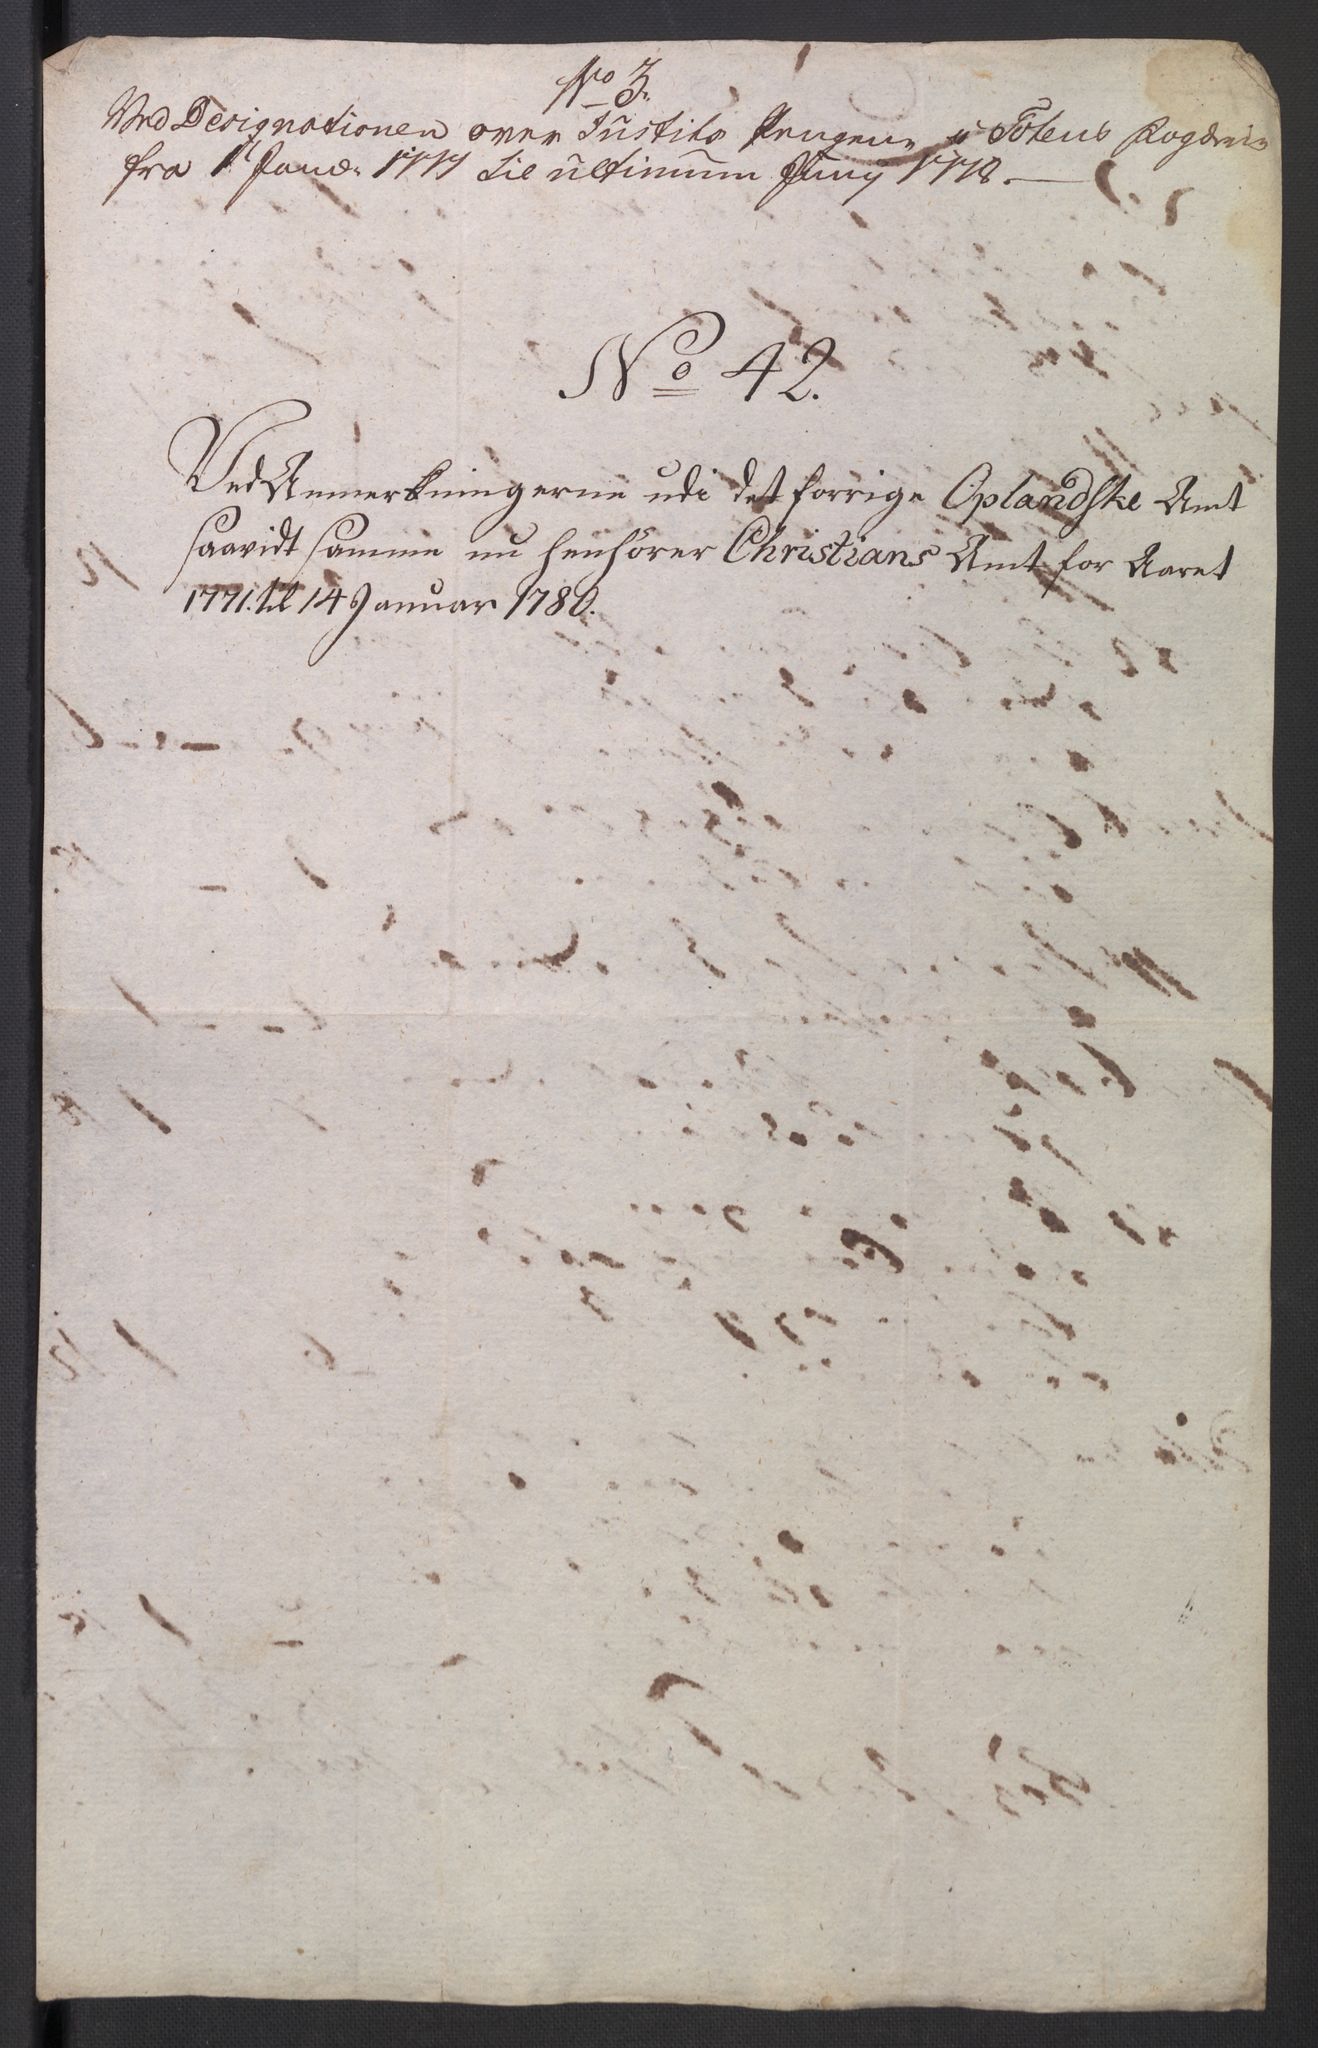 No 3.
Ved Designationen over Justits Pengene i Totens Fogderie
fra 1t Janua: 1777 til ultimum Juny 1778.
No 42.
Ved Anmerkningerne udi det forrige Oplandske Amt
saavidt samme nu henhörer Christians Amt for Aaret
1771. til 14 Januar 1780.